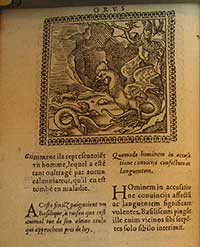 ORVS
Comment ilz representoiẽt
vn homme, lequel a esté
tant oultragé par aucun
calumniateur, qu'il en est
tombé en maladie.
Quomodo hominem in accusa
tione conuicijs confectum ac
languentem.
A Ceste fin ilz paignoient vn
Basilisque, a raison que cest
animal tue de son alaine ceulx
qui approchent pres de luy.
HOminem in accusatio
ne conuicijs affectũ
ac languentem significare
volentes, Basiliscum pingũt:
ille enim vicinos sibi serpẽ
tes solo sibilo interimit.